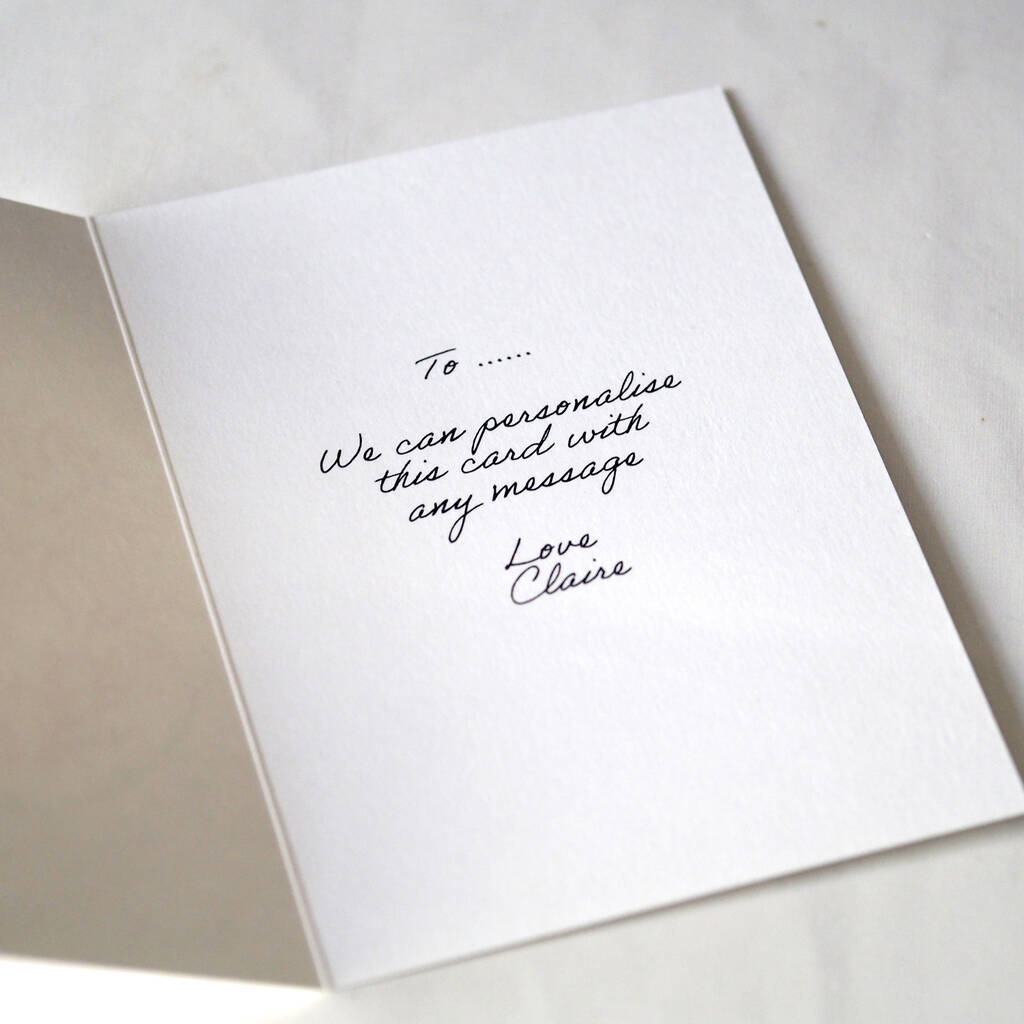 To ......
We can personalise
this card with
any message
Love
Claire